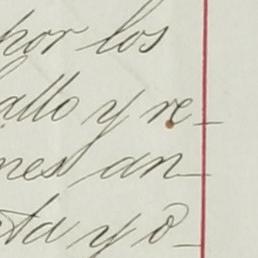 por los
allo y re-
nes an-
ta y o-